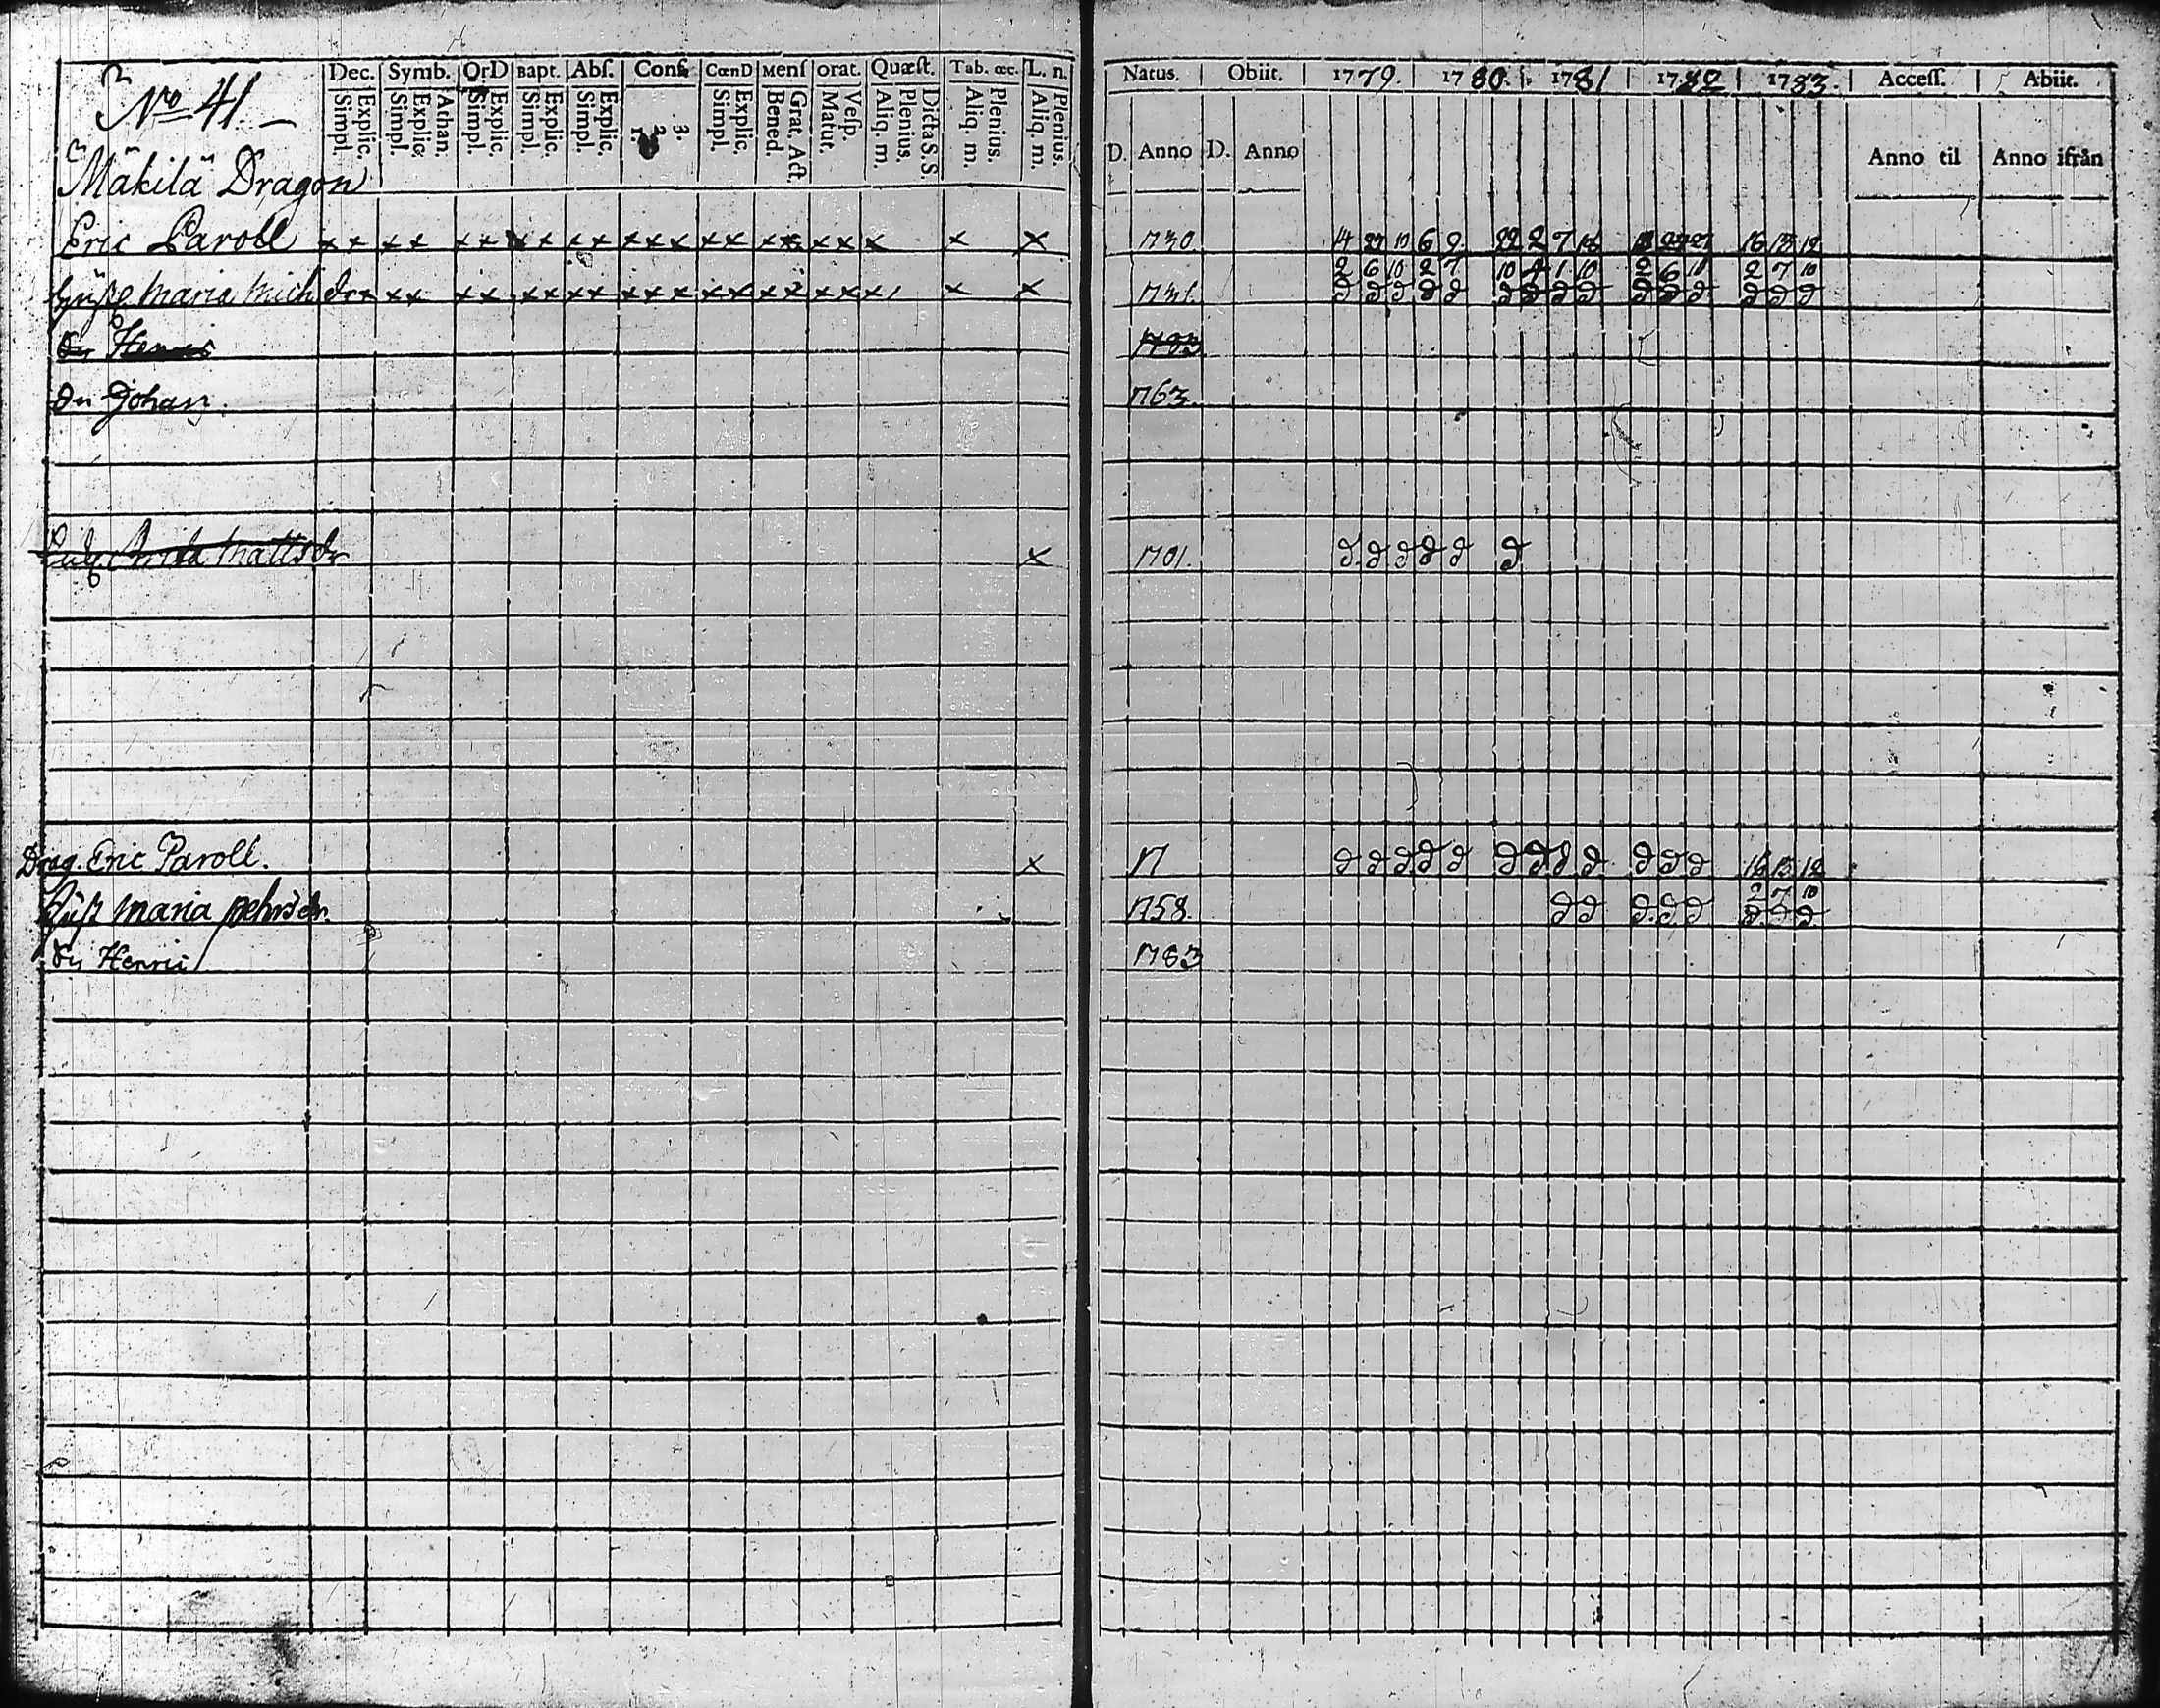 No 41.
Dec. Symb. OrD Bapt. Abſ. Conf. CœnD Menſ orat. Quæſt. Tab. œc. L. n.
Simpl. Explic. Simpl. Explic. Athan. Simpl. Explic. Simpl. Explic. Simpl. Explic. 1. 2. 3. Simpl. Explic. Bened. Grat. Act. Matut. Veſp. Aliq. m. Plenius. Dicta S.S. Aliq. m. Plenius. Aliq. m. Plenius.
Natus. Obiit. 1779. 1780. 1781 1782 1783. Acceſſ. Abiit.
D. Anno D. Anno Anno til Anno ifrån
Mäkilä Dragon
Eric Paroll x x x x x x x x x x x x x x x x x x x x x x 1730 14 27 10 6 9 22 2 7 16 13 12
2 6 10 2 7 10 4 1 10 2 6 10 2 7 10
Maria Mich dr x x x x x x x x x x x x x x x x x x x x 1731
Henric 1783
Johan. 1763.
Mattsdr x 1701.
Drag. Eric Paroll. x 17 16 13 12
2 7 10
Maria Pehrsdr. 1758.
Henric 1783